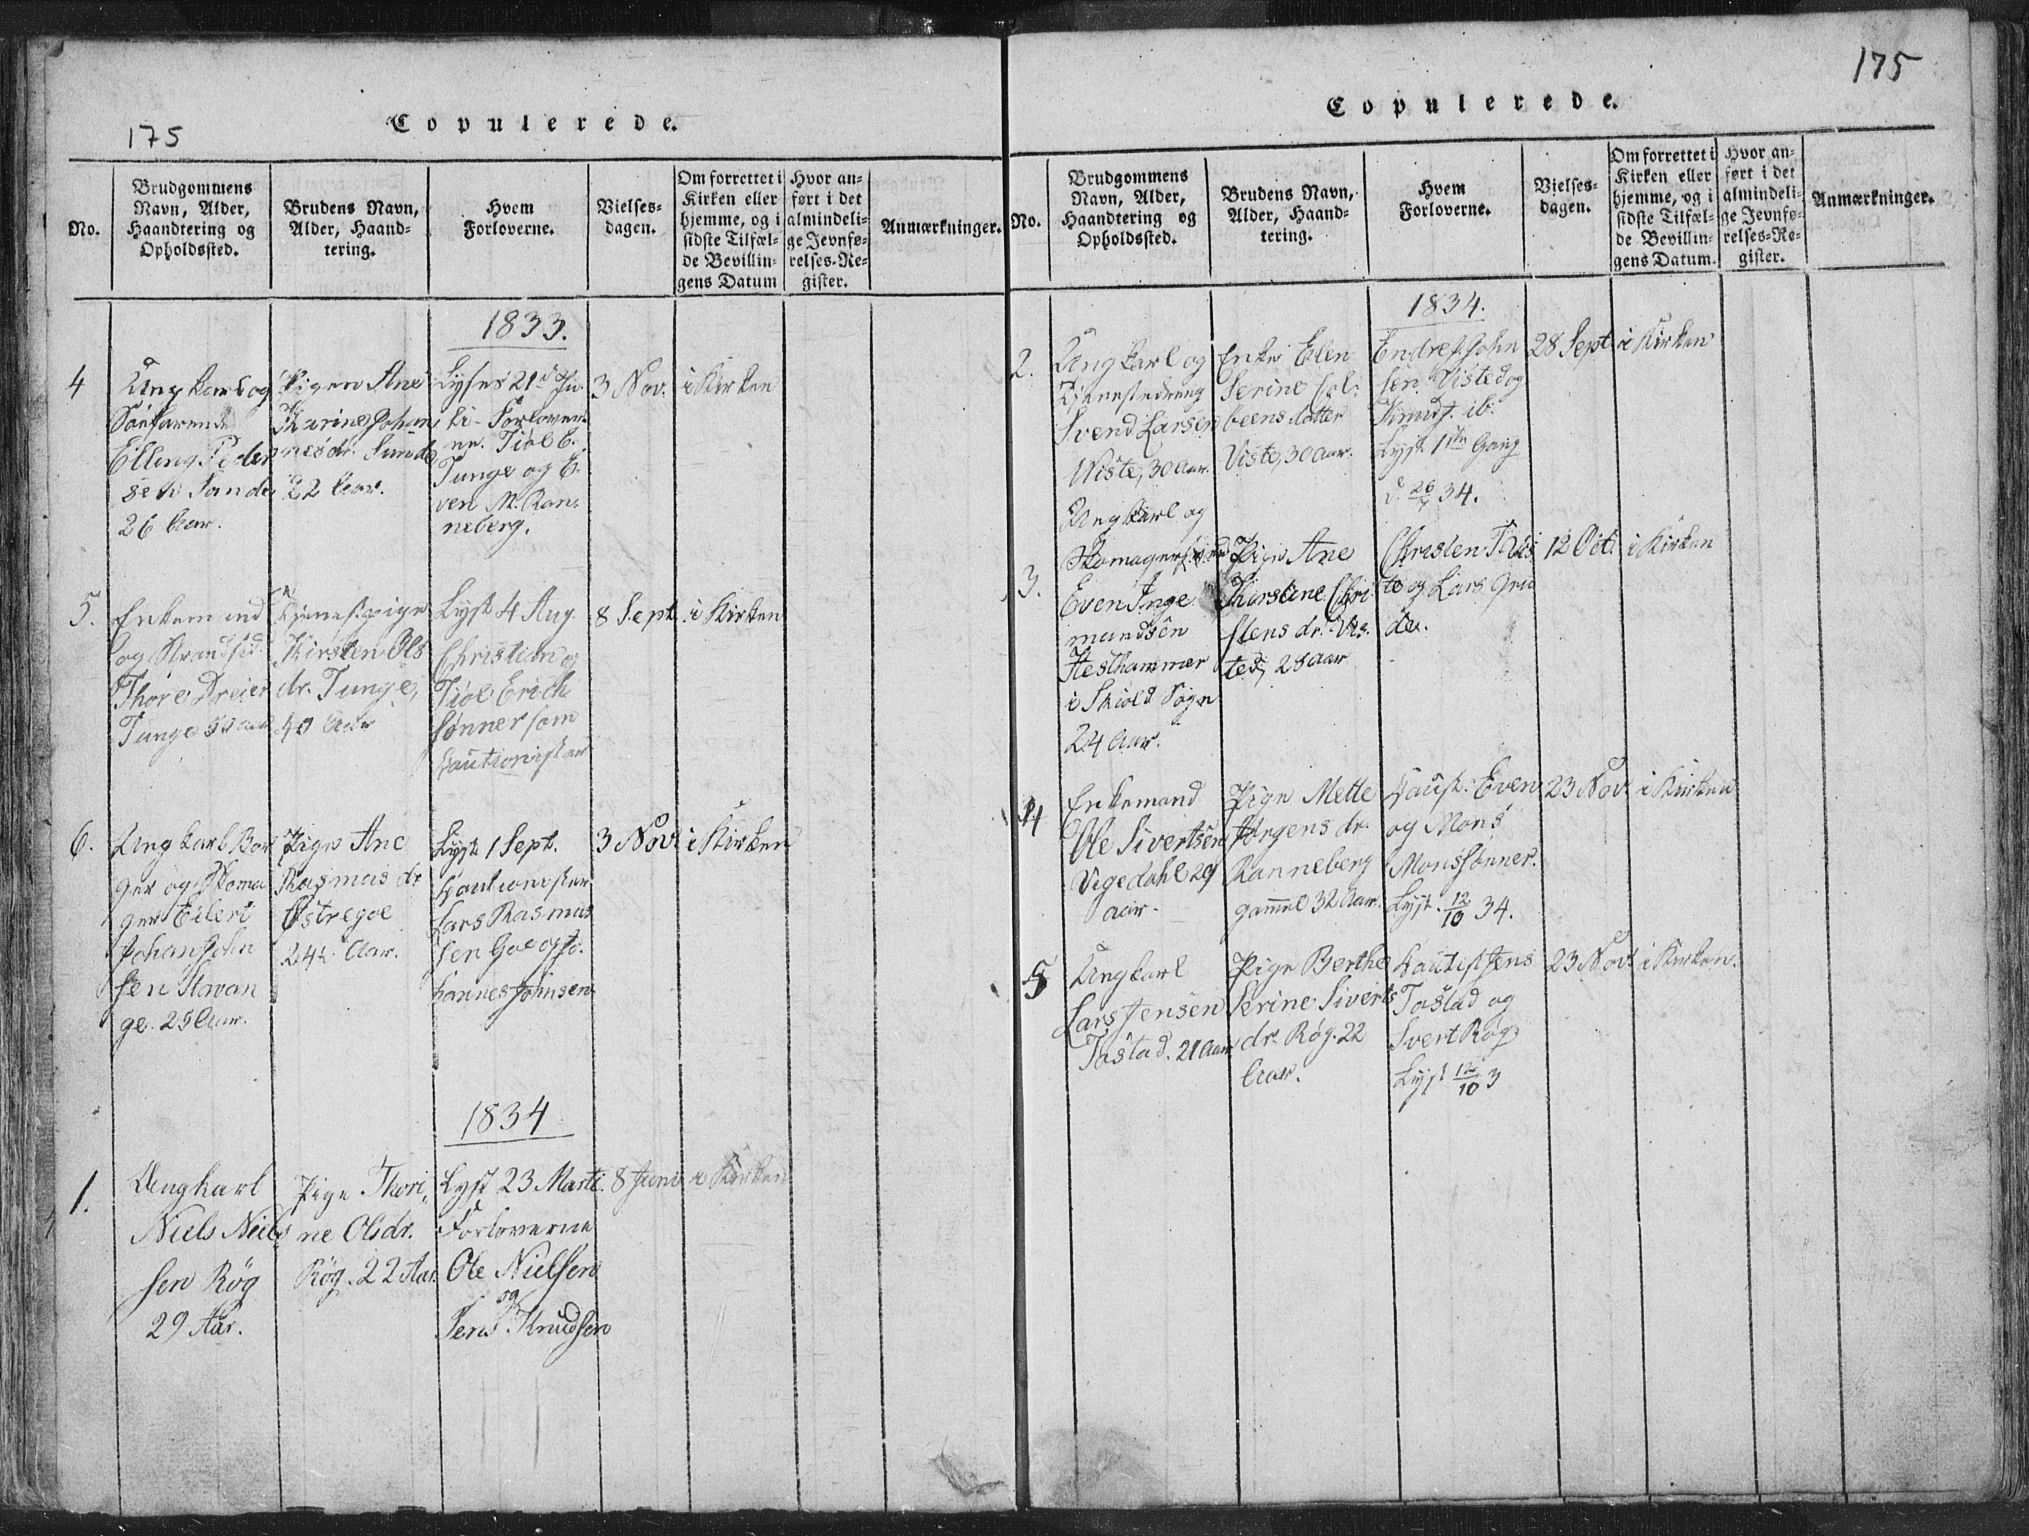 175
Copulerede.
No.
Brudgommens
Navn, Alder,
Haandtering og
Opholdssted.
Brudens Navn,
Alder, Haand-
tering.
Hvem
Forloverne.
Vielses-
dagen.
Om forrettet i
Kirken eller
hjemme, og i
sidste Tilfæl-
de Bevillin-
gens Datum
Hvor an-
ført i det
almindeli-
ge Jevnfø-
relses-Re-
gister.
Anmærkninger.
1833.
4
Ungkarl og
Søefarende
Elling Peder
sen Sande
26 Aar.
Pigen Ane
Karine Johan
nesdr. Sunde
22 Aar.
Lyses 21d Ju
li. Forlover-
ne. Tiøl E.
Tunge og E-
ven M. Ran-
neberg.
3 Nov.
i Kirken
5.
Enkemand
og Strandsid.
Thore Dreier
Tunge
Tjenestpige
Kirsten Ols
dr. Tunge,
40 Aar
Lyst 4 Aug.
Christian og
Tiøl Erich
sønner som
Cautionister
8 Sept.
i Kirken
6.
Ungkarl Bor
ger og Skoma
ger Eilert
Johan John
sen Stavan
ger. 25 Aar.
Pige Ane
Rasmus dr
Østregoe
24½ Aar.
Lyst 1 Sept.
Cautionister
Lars Rasmus
sen Goe og Jo-
hannes Johnsen
3 Nov.
i Kirken
1834
1.
Ungkarl
Niels Niels
sen Røg
29 Aar.
Pige Thori-
ne Olsdr.
Røg. 22 Aar.
Lyst 23 Marti.
Forloverne
Ole Nielsen
og
Jens Knudsen
8 Juni
i Kirken
175
Copulerede.
No.
Brudgommens
Navn, Alder,
Haandtering og
Opholdssted.
Brudens Navn,
Alder, Haand-
tering.
Hvem
Forloverne.
Vielses-
dagen.
Om forrettet i
Kirken eller
hjemme, og i
sidste Tilfæl-
de Bevillin-
gens Datum.
Hvor an-
ført i det
almindeli-
ge Jevnfø-
relses-Re-
gister.
Anmærkninger.
1834.
2.
Ungkarl og
Tjenestedreng
Svend Larsen
Wiste, 30 Aar.
Enke Elen
Serine Col-
beens datter
Viste, 30 Aar.
Endre John
sen Visted og
Knud ib.
Lyst 1ste Gang
d. 26/7 34.
28 Sept
i Kirken
3.
Ungkarl og
Skomager
Even Inge
mundsen
Hesthammer
i Skiold Sogn
24 Aar.
Pige Ane
Kirstine Chri
stens dr. Vis-
ted, 28 Aar
Christen Vis
te og Lars Gru
de.
12 Oct.
i Kirken
4
Enkemand
Ole Sivertsen
Vigedahl 29
aar.
Pige Mette
Jørgens dr.
Ranneberg
gammel 32 Aar.
Caust. Even
og Mons
Monssønner.
Lyst. 12/10 34.
23 Nov.
i Kirken
5
Ungkarl
Lars Jensen
Tastad. 21 Aar
Pige Berthe
Serine Siverts
dr. Røg. 22
Aar.
Cautist Jens
Tastad og
Svert Røg
Lyst 12/10 3
23 Nov.
i Kirken.